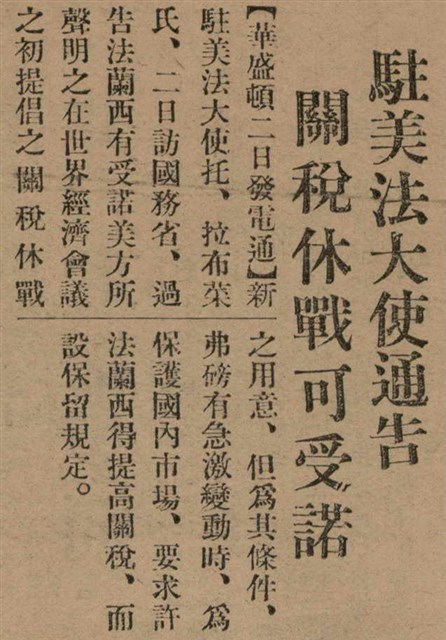 駐美法大使通告
關稅休戰可受諾
【華盛頓二日發電通】新
駐美法大使托、拉布萊
氏、二日訪國務省、過
告法蘭西有受諾美方所
聲明之在世界經濟會議
之初提倡之關稅休戰
之用意、但爲其條件、
弗磅有急激變動時、爲
保護國內市場、要求許
法蘭西得提高關稅、而
設保留規定。